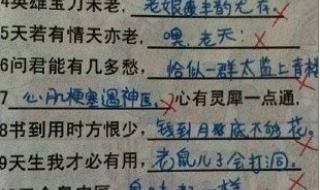 4英雄宝刀未老,老娘风韵尤存。
5天若有情天亦老,噢,老天!
6问君能有几多愁,恰似一群太监上青楼
7 心肌梗塞遇神医,心有灵犀一点通,
8书到用时方恨少,钱到月底不够花。
9天生我才必有用,老鼠儿子会打洞。